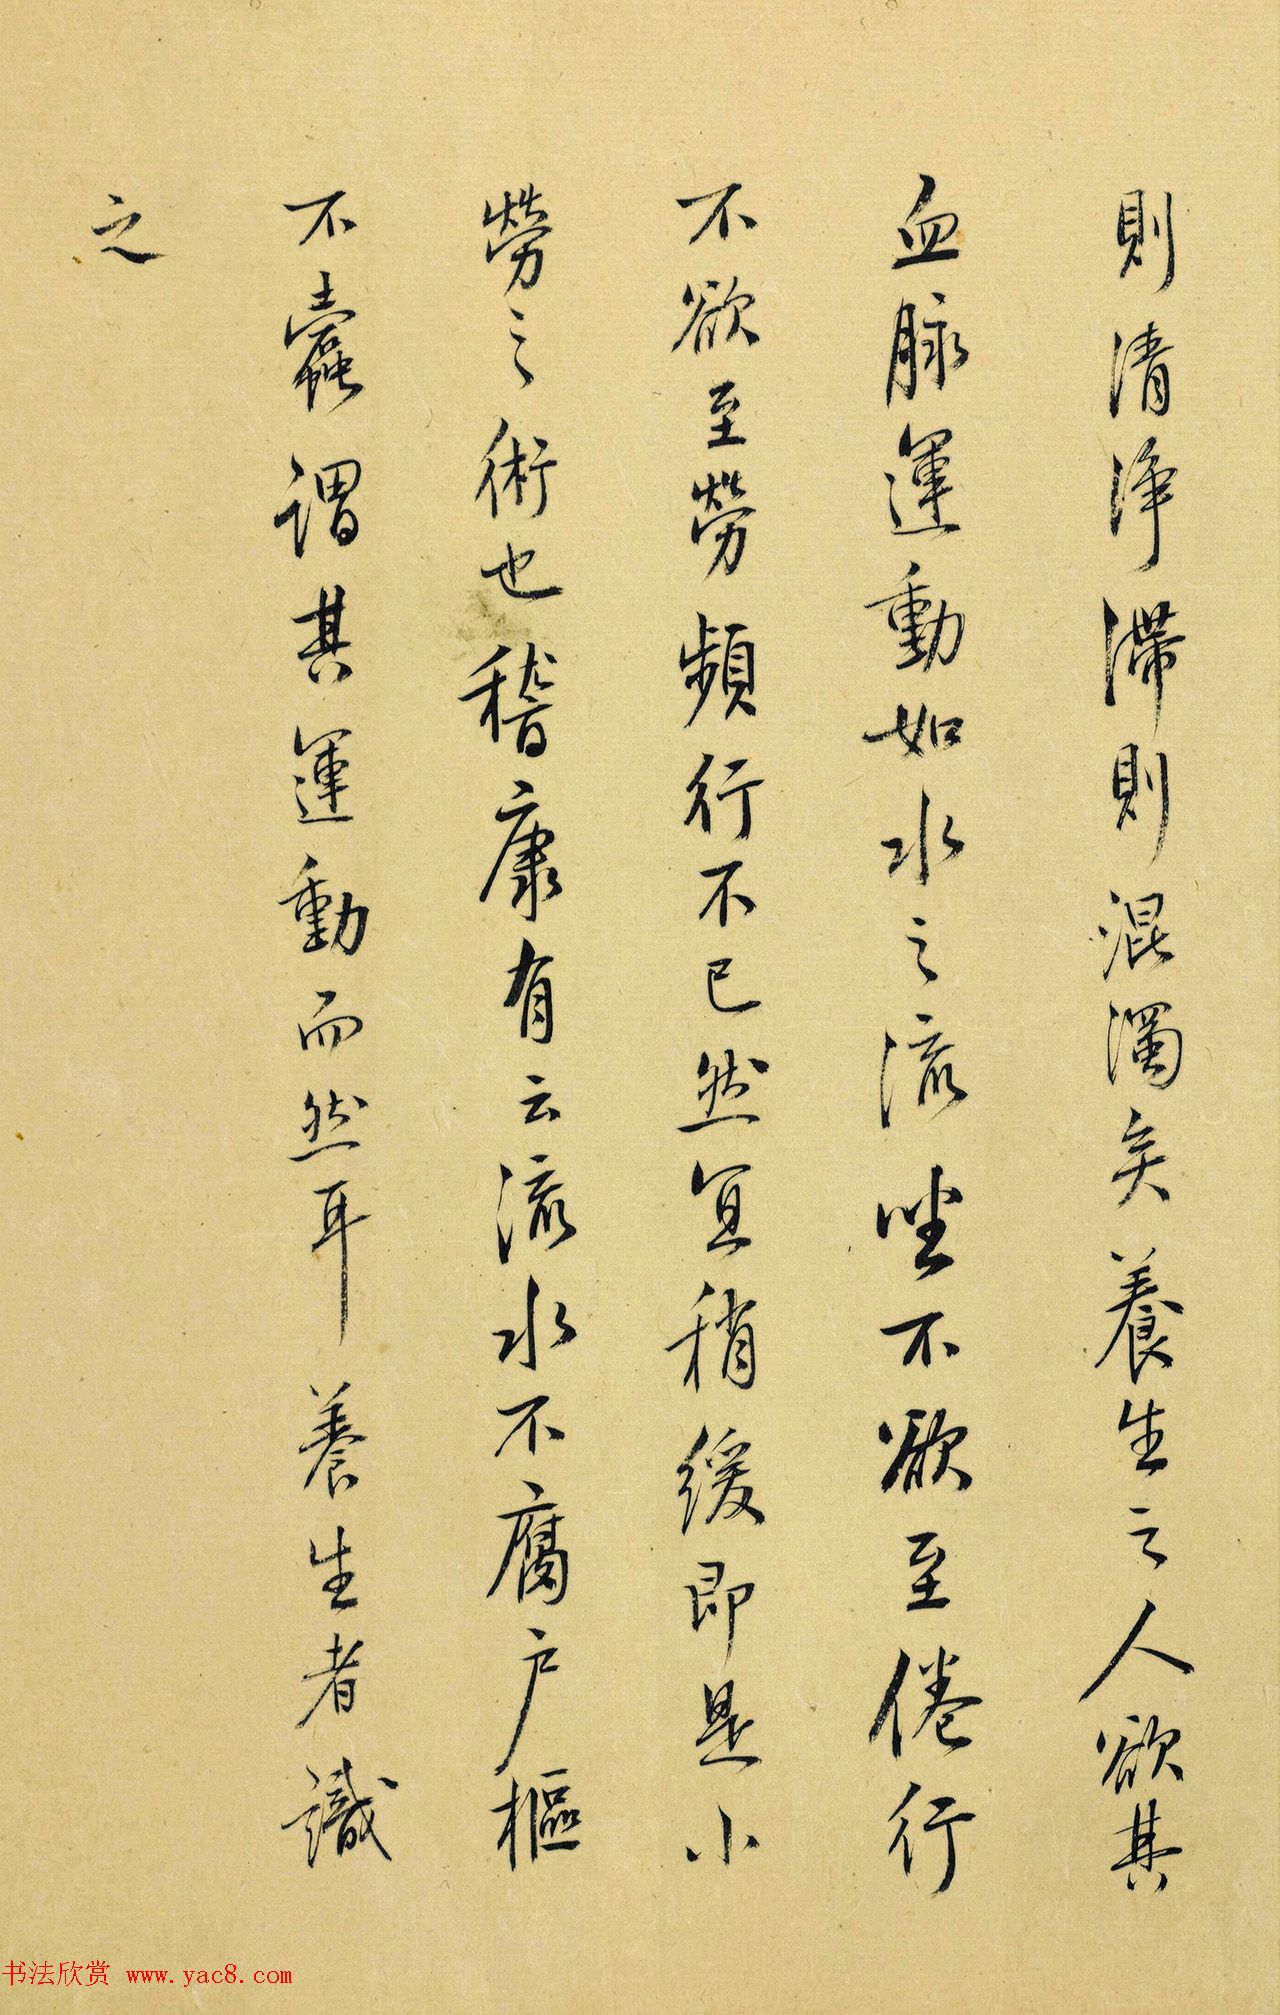 則清浄滯則混濁矣養生之人欲其
血脉運動如水之流坐不欲至倦行
不欲至勞頻行不已然宜稍緩即是小
勞之術也稽康有云流水不腐户樞
不蠹謂其運動而然耳養生者識
之
书法欣赏 www.yac8.com